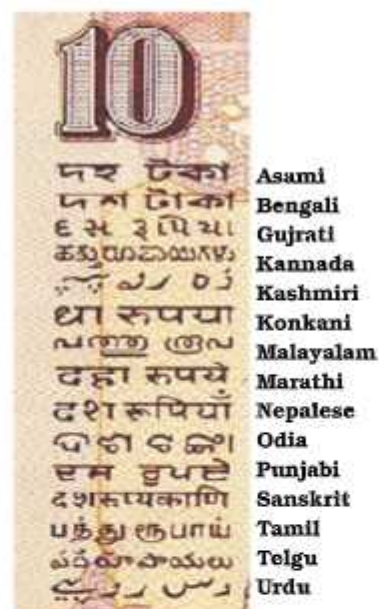 10
দহ টকা Asami
দশ টাকা Bengali
દસ રૂપિયા Gujrati
ಹತ್ತು ರೂಪಾಯಿಗಳು Kannada
Kashmiri
धा रुपया Konkani
പത്തു രൂപ Malayalam
दहा रुपये Marathi
दश रूपियाँ Nepalese
ଦଶ ଟଙ୍କା Odia
ਦਸ ਰੁਪਏ Punjabi
दशरूप्यकाणि Sanskrit
பத்து ரூபாய் Tamil
పది రూపాయలు Telgu
دس روپیے Urdu